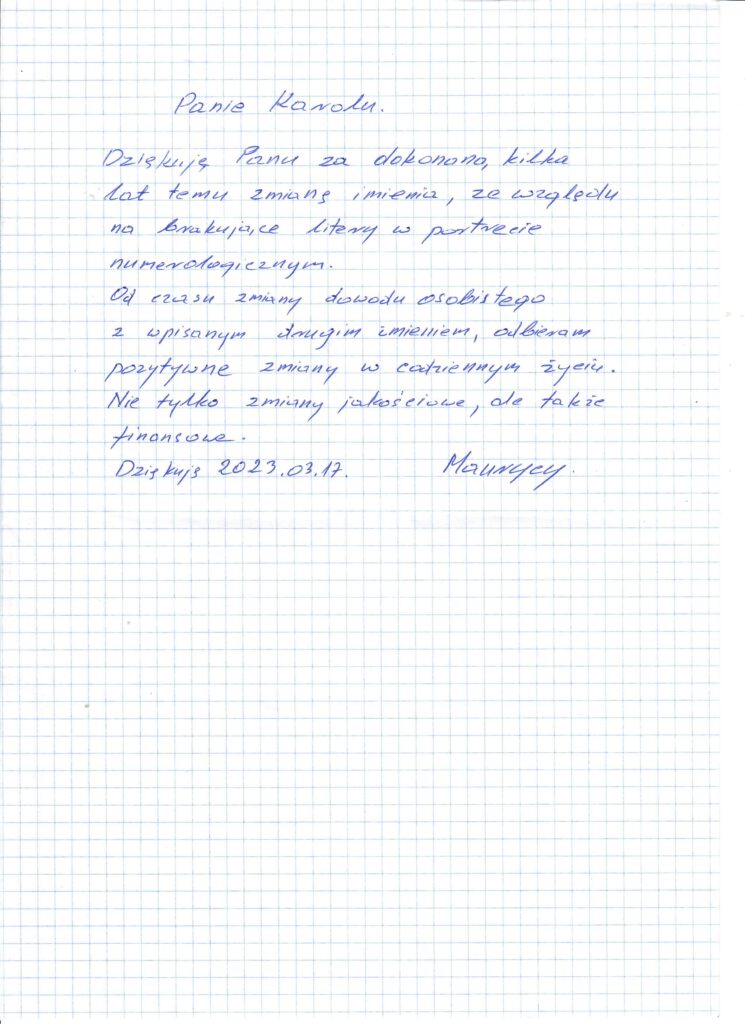 Panie Karolu.
Dziękuję Panu za dokonaną kilka
lat temu zmianę imienia, ze względu
na brakujące litery w portrecie
numerologicznym.
Od czasu zmiany dowodu osobistego
z wpisanym drugim imieniem, odbieram
pozytywne zmiany w codziennym życiu.
Nie tylko zmiany jakościowe, ale także
finansowe.
Dziękuję 2023.03.17. Maurycy.